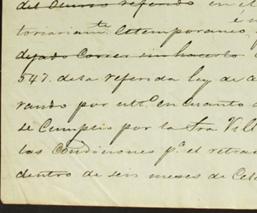 del Censo referido en el
é n
toriamte. Estemporanea,
dejado correr sin hacerlo
547. de la referida ley de
rando por ultº. en cuanto a
se Cumplio por la Sra
las Condiciones pª. el retra
dentro de seis meses de Cele